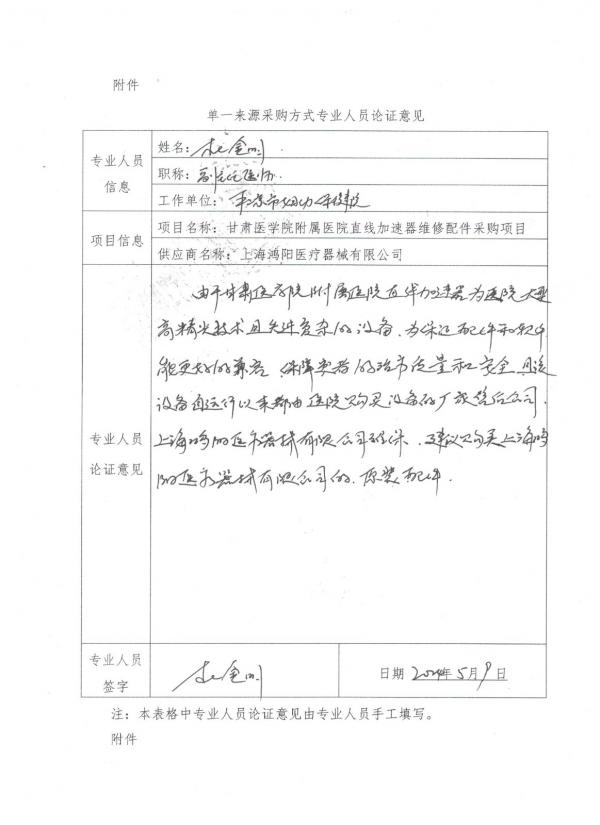 附件
单一来源采购方式专业人员论证意见
专业人员
信息
姓名：杜金
职称：副主任医师
工作单位：平凉市妇幼保健院
项目信息
项目名称：甘肃医学院附属医院直线加速器维修配件采购项目
供应商名称：上海鸿阳医疗器械有限公司
专业人员
论证意见
由于甘肃医学院附属医院直线加速器为医院大型
高精尖技术且关键复杂的设备，为保证配件和软件
能更好的兼容，保障患者的治疗质量和安全，且该
设备自运行以来都由医院购买设备的厂放售后公司，
上海鸿阳医疗器械有限公司 ，建议购买上海鸿
阳医疗器械有限公司的，原装配件.
专业人员
签字
杜金
日期 2024年5月9日
注：本表格中专业人员论证意见由专业人员手工填写。
附件